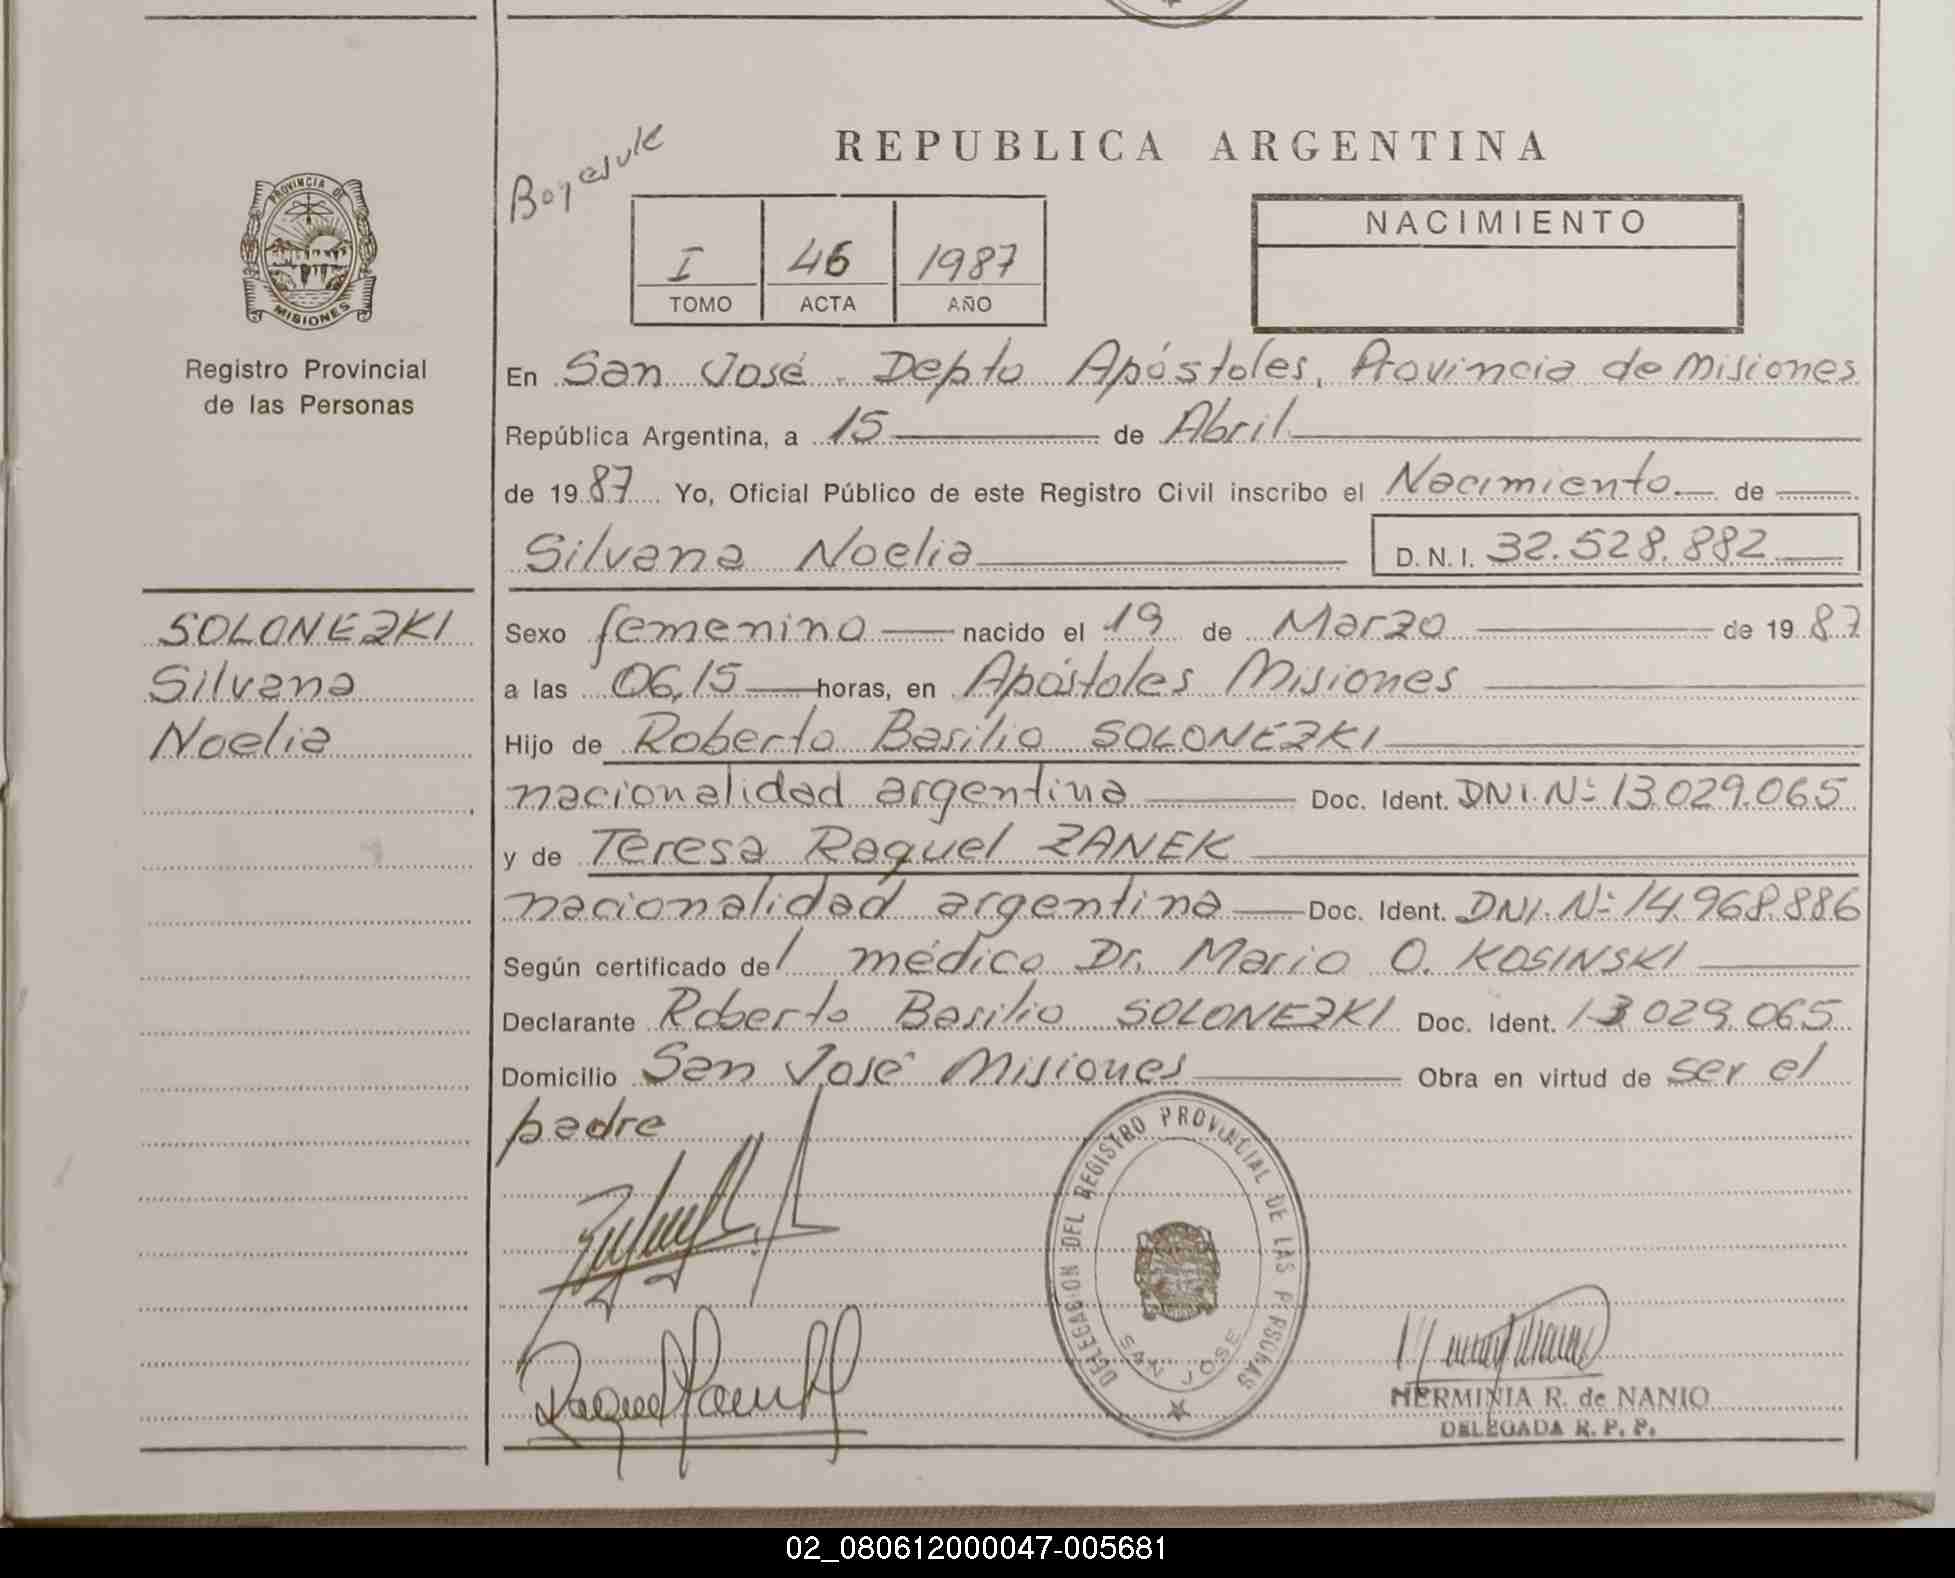 REPUBLICA ARGENTINA
PROVINCIA DE
MISIONES
Registro Provincial
de las Personas
I 46 1987
TOMO ACTA AÑO
NACIMIENTO
En San José - Depto Apóstoles, Provincia de Misiones
República Argentina, a 15 de Abril
de 1987 Yo, Oficial Público de este Registro Civil inscribo el Nacimiento de
Silvana Noelia D.N.I. 32.528.882
SOLONEZKI
Silvana
Noelia
Sexo femenino nacido el 19 de Marzo de 1987
a las 06,15 horas, en Apóstoles Misiones
Hijo de Roberto Basilio SOLONEZKI
nacionalidad argentina Doc. Ident. DNI. Nº 13.029.065
y de Teresa Raquel ZANEK
nacionalidad argentina Doc. Ident. DNI. Nº 14.968.886
Según certificado del médico Dr. Mario O. KOSINSKI
Declarante Roberto Basilio SOLONEZKI Doc. Ident. 13.029.065
Domicilio San José Misiones Obra en virtud de ser el
padre
DELEGACION DEL REGISTRO PROVINCIAL DE LAS PERSONAS
SAN JOSE
HERMINIA R. de NANIO
DELEGADA R. P. P.
02_080612000047-005681